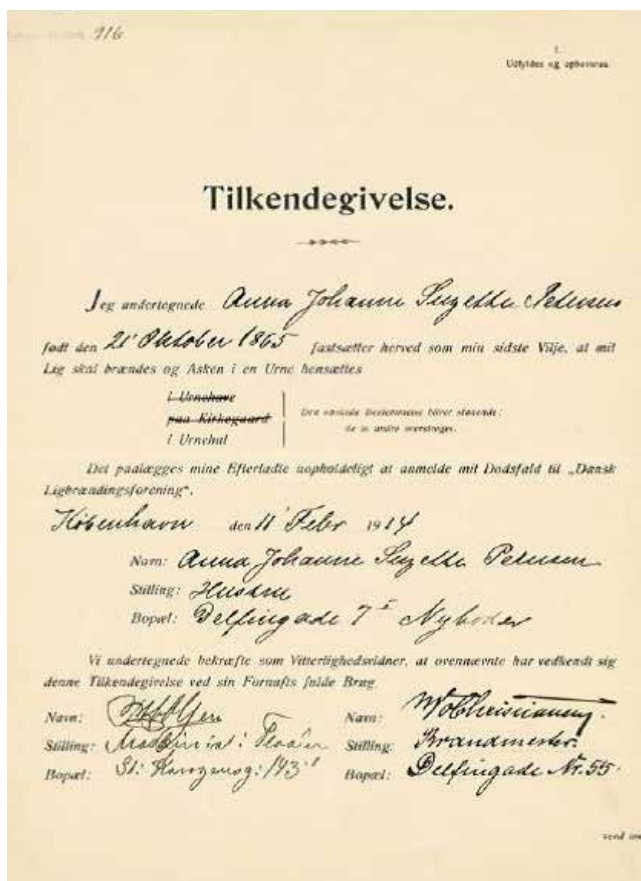 916
1.
Udfyldes og opbevares.
Tilkendegivelse.
Jeg undertegnede Anna Johanne Suzette Petersen
født den 21' Oktober 1865 fastsætter herved som min sidste Vilje, at mit
Lig skal brændes og Asken i en Urne hensættes
i Urnehave
paa Kirkegaard
i Urnehal
Den ønskede Bestemmelse bliver staaende;
de to andre overstreges.
Det paalægges mine Efterladte uopholdeligt at anmelde mit Dødsfald til „Dansk
Ligbrændingsforening“.
København den 11' Febr 1914
Navn: Anna Johanne Suzette Petersen
Stilling: Hustru
Bopæl: Delfingade 7 I Nyboder
Vi undertegnede bekræfte som Vitterlighedsvidner, at ovennævnte har vedkendt sig
denne Tilkendegivelse ved sin Fornufts fulde Brug
Navn: Navn: Christiansen
Stilling: Maskinist i Flaaden Stilling: Brandmester
Bopæl: St. Kongensg: 143 Bopæl: Delfingade Nr. 55
vend om